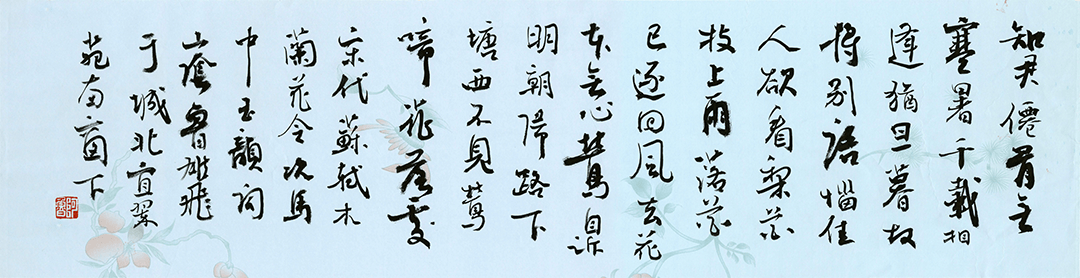 知君僊骨無
寒暑千載相
逢猶旦暮故
將别語惱佳
人欲看梨花
枝上雨落花
已逐回風去花
本无心鶯自訴
明朝歸路下
塘西不見鶯
啼花落處
宋代蘇軾木
蘭花令次馬
中玉韻詞
山陰魯雄飛
于城北宜翠
苑南窗下